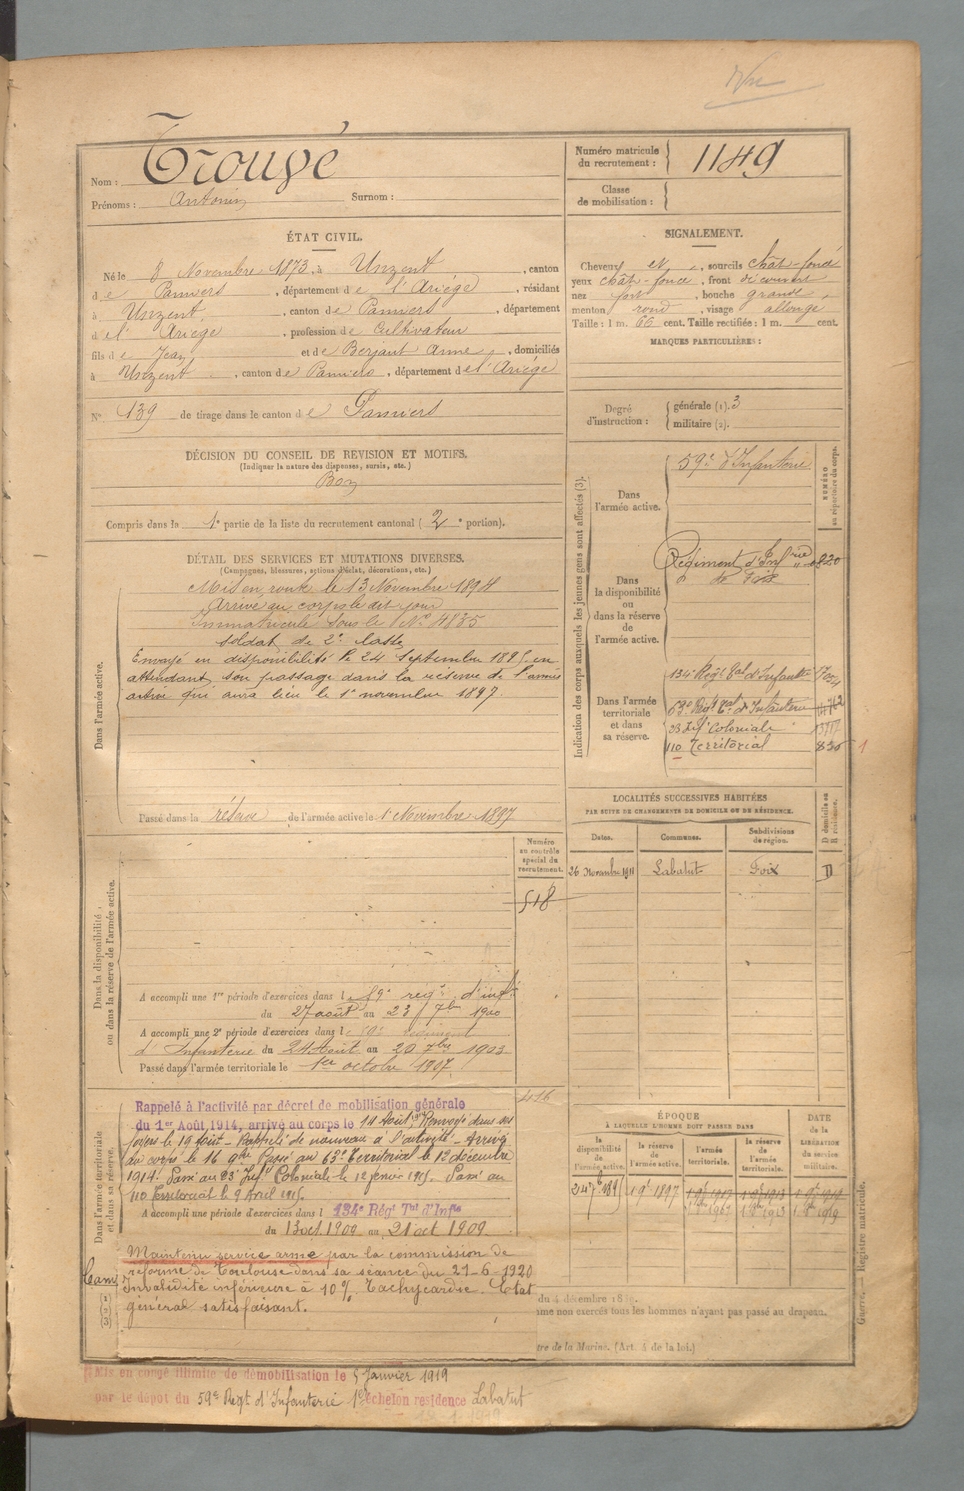 Nom : Trougé
Prénoms : Antonin Surnom :
Numéro matricule du recrutement : 1149
Classe de mobilisation :
ÉTAT CIVIL.
Né le 8 Novembre 1873, à Unzent, canton
de Pamiers, département de l'Ariège, résidant
à Unzent, canton de Pamiers, département
de l'Ariège, profession de Cultivateur
fils de Jean et de Berjaut Anne, domiciliés
à Unzent, canton de Pamiers, département de l'Ariège
N° 139 de tirage dans le canton de Pamiers
DÉCISION DU CONSEIL DE REVISION ET MOTIFS.
(Indiquer la nature des dispenses, sursis, etc.)
Bon
Compris dans la 1e partie de la liste du recrutement cantonal (2e portion).
SIGNALEMENT.
Cheveux et, sourcils chât-foncé
yeux chât-foncé, front découvert
nez fort, bouche grande,
menton rond, visage allongé
Taille : 1 m. 66 cent. Taille rectifiée : 1 m. cent.
MARQUES PARTICULIÈRES :
Degré d'instruction : générale (1). 3
militaire (2).
DÉTAIL DES SERVICES ET MUTATIONS DIVERSES.
(Campagnes, blessures, actions d'éclat, décorations, etc.)
Dans l'armée active.
Mis en route le 13 Novembre 1894
Arrivé au corps le dit jour
Immatriculé sous le N° 4835
soldat de 2e classe
Envoyé en disponibilité le 24 septembre 1895 en
attendant son passage dans la réserve de l'armée
active qui aura lieu le 1er novembre 1897.
Passé dans la réserve de l'armée active le 1er Novembre 1897
Indication des corps auxquels les jeunes gens sont affectés (3).
NUMÉRO au répertoire du corps.
Dans l'armée active.
59e d'Infanterie
Dans la disponibilité ou dans la réserve de l'armée active.
Régiment d'Infrie 820
de Foix
Dans l'armée territoriale et dans sa réserve.
134e Régt Tal d'Infantie
63e Régt Tal d'Infanterie
23 Inf Coloniale
110 Territorial 835 1
LOCALITÉS SUCCESSIVES HABITÉES
PAR SUITE DE CHANGEMENTS DE DOMICILE OU DE RÉSIDENCE.
Dates. Communes. Subdivisions de région. D domicile ou R résidence.
26 Novembre 1911 Labatut Foix D
Dans la disponibilité ou dans la réserve de l'armée active.
Numéro au contrôle spécial du recrutement.
518
A accompli une 1re période d'exercices dans le 59e régt d'inf
du 27 août au 23 7bre 1900
A accompli une 2e période d'exercices dans le
d'Infanterie du 24 Août au 20 7bre 1903
Passé dans l'armée territoriale le 1er octobre 1907
Dans l'armée territoriale et dans sa réserve.
Rappelé à l'activité par décret de mobilisation générale
du 1er Août 1914, arrivé au corps le 14 Août. Renvoyé dans ses
foyers le 19 Août - Rappelé de nouveau à l'activité - Arrivé
au corps le 16 9bre Passé au 63e Territorial le 12 décembre
1914. Passé au 23e Infie Coloniale le 12 janvier 1915. Passé au
110 Territorial le 9 Avril 1915.
A accompli une période d'exercices dans l 134e Régt Tal d'Infie
du 13 oct 1909 au 21 oct 1909.
Maintenu service armé par la commission de
réforme de Toulouse dans sa séance du 21-6-1920
Invalidité inférieure à 10% Tachycardie. Etat
général satisfaisant.
Cam
ÉPOQUE
À LAQUELLE L'HOMME DOIT PASSER DANS
la disponibilité de l'armée active. la réserve de l'armée active. l'armée territoriale. la réserve de l'armée territoriale.
DATE de la LIBÉRATION du service militaire.
24 7bre 1895 1 9bre 1897
du 4 décembre 18
me non exercés tous les hommes n'ayant pas passé au drapeau.
tre de la Marine. (Art. 4 de la loi.)
Guerre. — Registre matricule.
Mis en congé illimité de démobilisation le 5 Janvier 1919
par le dépôt du 59e Régt d'Infanterie 1er échelon résidence Labatut